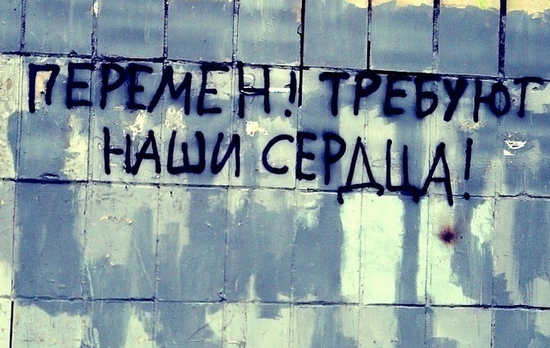 ПЕРЕМЕН! ТРЕБУЮТ
НАШИ СЕРДЦА!